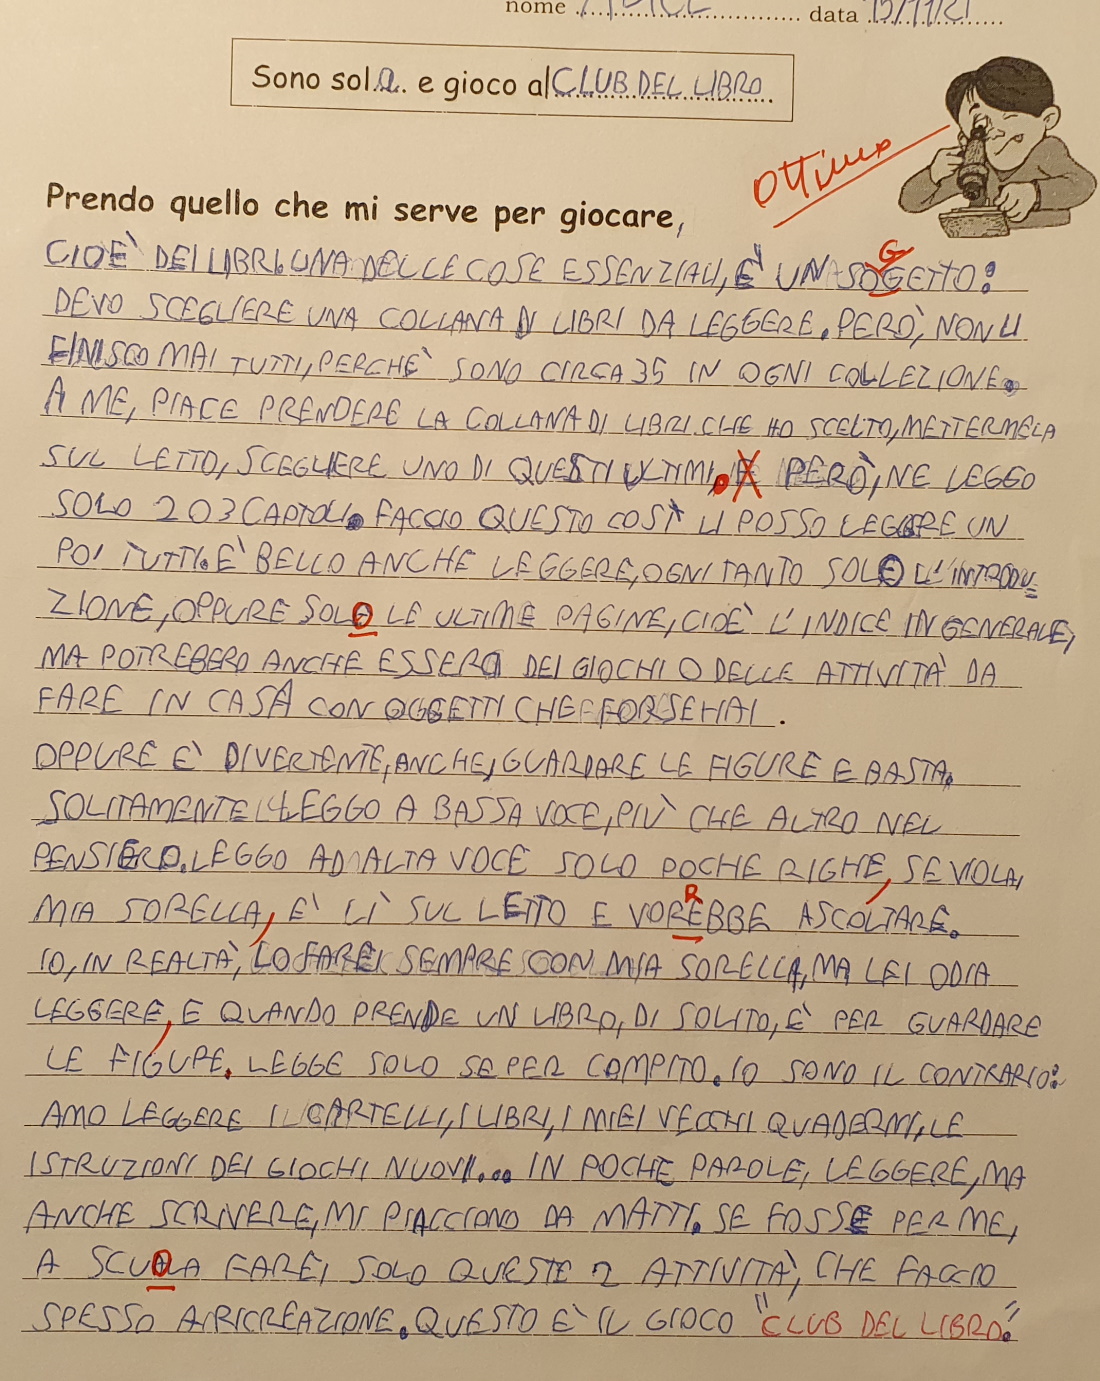 nome data 15/11/21
Sono sola e gioco al CLUB DEL LIBRO
OTTIMO
Prendo quello che mi serve per giocare,
CIOÈ DEI LIBRI. UNA DELLE COSE ESSENZIALI, È UN SOGGETTO:
DEVO SCEGLIERE UNA COLLANA DI LIBRI DA LEGGERE. PERÒ, NON LI
FINISCO MAI TUTTI, PERCHÈ SONO CIRCA 35 IN OGNI COLLEZIONE.
A ME, PIACE PRENDERE LA COLLANA DI LIBRI CHE HO SCELTO, METTERMELA
SUL LETTO, SCEGLIERE UNO DI QUESTI ULTIMI. PERÒ, NE LEGGO
SOLO 2 O 3 CAPTOLI. FACCIO QUESTO COSÌ LI POSSO LEGGERE UN
PO' TUTTI. È BELLO ANCHE LEGGERE, OGNI TANTO SOLO L'INTRODU=
ZIONE, OPPURE SOLO LE ULTIME PAGINE, CIOÈ L'INDICE IN GENERALE,
MA POTREBERO ANCHE ESSERCI DEI GIOCHI O DELLE ATTIVITÀ DA
FARE IN CASA CON OGGETTI CHE FORSE HAI.
OPPURE È DIVERTENTE, ANCHE, GUARDARE LE FIGURE E BASTA.
SOLITAMENTE LEGGO A BASSA VOCE, PIÙ CHE ALTRO NEL
PENSIERO. LEGGO AD ALTA VOCE SOLO POCHE RIGHE, SE VIOLA,
MIA SORELLA, È LÌ SUL LETTO E VORREBBE ASCOLTARE.
IO, IN REALTÀ, LO FAREI SEMPRE CON MIA SORELLA, MA LEI ODIA
LEGGERE, E QUANDO PRENDE UN LIBRO, DI SOLITO, È PER GUARDARE
LE FIGURE. LEGGE SOLO SE PER COMPITO. IO SONO IL CONTRARIO:
AMO LEGGERE I CARTELLI, I LIBRI, I MIEI VECCHI QUADERNI, LE
ISTRUZIONI DEI GIOCHI NUOVI... IN POCHE PAROLE, LEGGERE, MA
ANCHE SCRIVERE, MI PIACCIONO DA MATTI. SE FOSSE PER ME,
A SCUOLA FAREI SOLO QUESTE 2 ATTIVITÀ, CHE FACCIO
SPESSO A RICREAZIONE. QUESTO È IL GIOCO "CLUB DEL LIBRO."